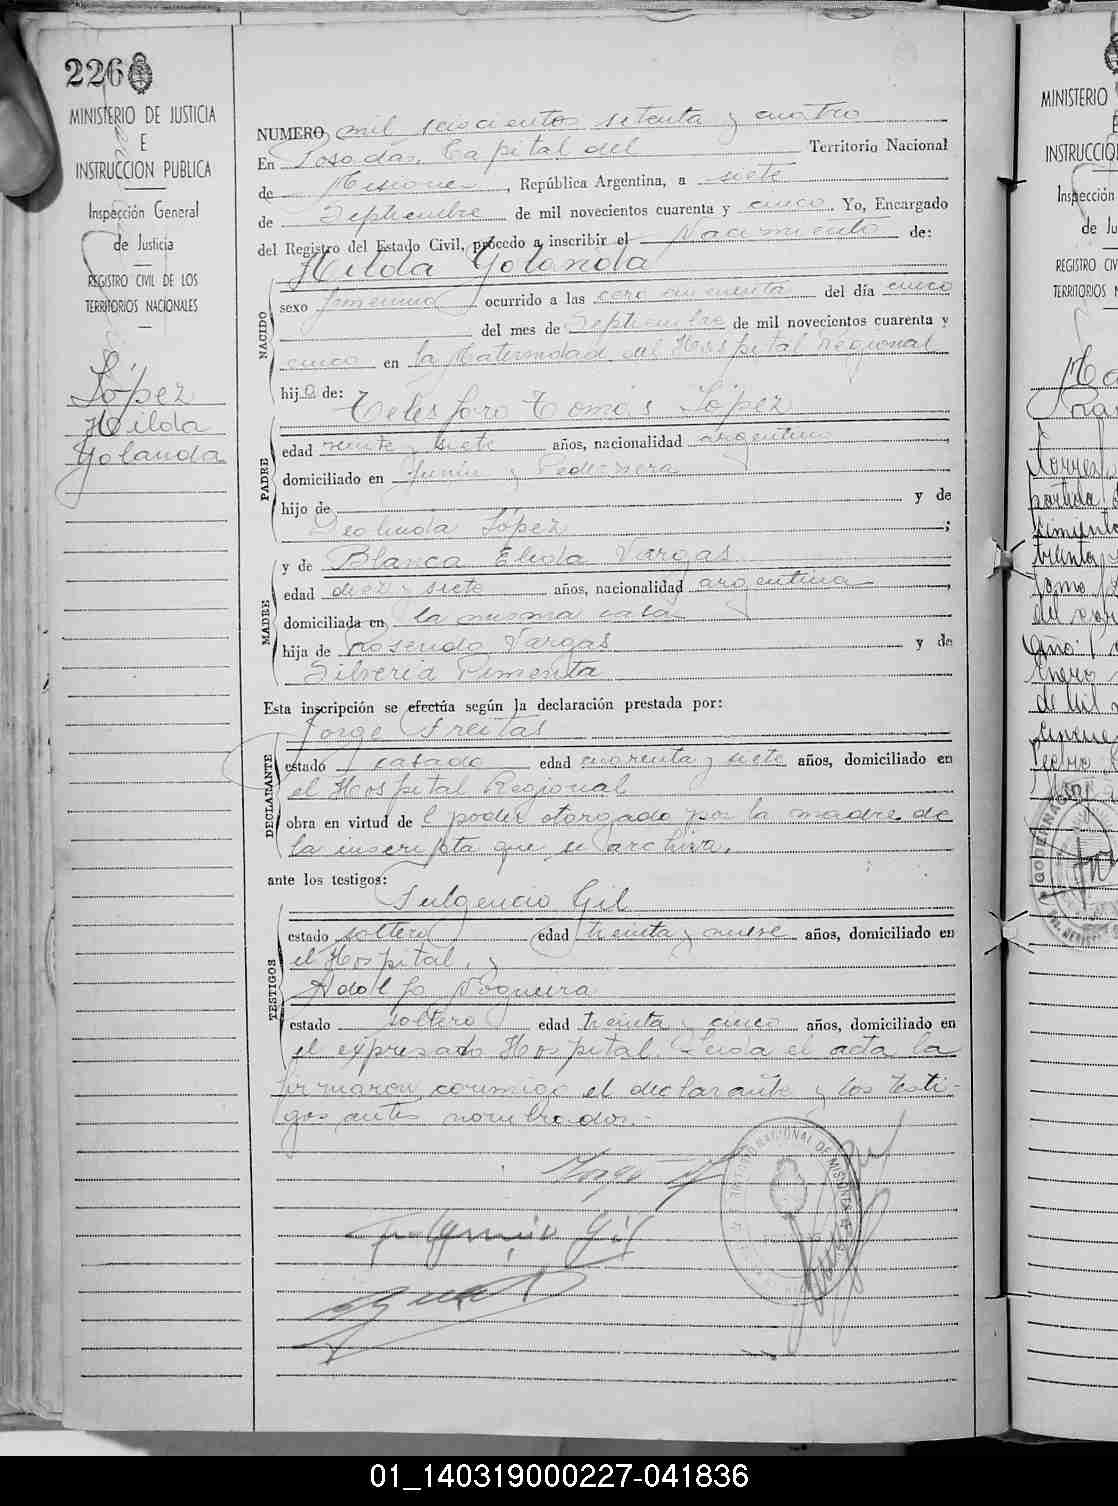 226
MINISTERIO DE JUSTICIA
E
INSTRUCCION PUBLICA
Inspección General
de Justicia
REGISTRO CIVIL DE LOS
TERRITORIOS NACIONALES
López
Hilda
Yolanda
NUMERO mil seiscientos setenta y cuatro
En Posadas, Capital del Territorio Nacional
de Misiones, República Argentina, a siete
de Septiembre de mil novecientos cuarenta y cinco. Yo, Encargado
del Registro del Estado Civil, procedo a inscribir el Nacimiento de:
Hilda Yolanda
NACIDO
sexo femenino ocurrido a las cero cincuenta del día cinco
del mes de Septiembre de mil novecientos cuarenta y
cinco en la Maternidad del Hospital Regional
hija de:
Telesforo Tomás López
PADRE
edad veinte y siete años, nacionalidad argentino
domiciliado en Junín y
hijo de y de
Deolinda López ;
y de Blanca Elida Vargas
MADRE
edad diez y siete años, nacionalidad argentina
domiciliada en la misma casa
hija de Rosendo Vargas y de
Silveria Pimenta
Esta inscripción se efectúa según la declaración prestada por:
Jorge Freitas
DECLARANTE
estado casado edad cuarenta y siete años, domiciliado en
el Hospital Regional
obra en virtud de l poder otorgado por la madre de
la inscripta que se archiva.
ante los testigos:
Fulgencio Gil
TESTIGOS
estado soltero edad treinta y nueve años, domiciliado en
el Hospital, y
Adolfo Nogueira
estado soltero edad treinta y cinco años, domiciliado en
el expresado Hospital. Leída el acta la
firmaron conmigo el declarante y los testi-
gos antes nombrados.-
Jorge
Fulgencio Gil
MINISTERIO
INSTRUCCIO
Inspección
de Ju
REGISTRO CIV
TERRITORIOS N
01_140319000227-041836